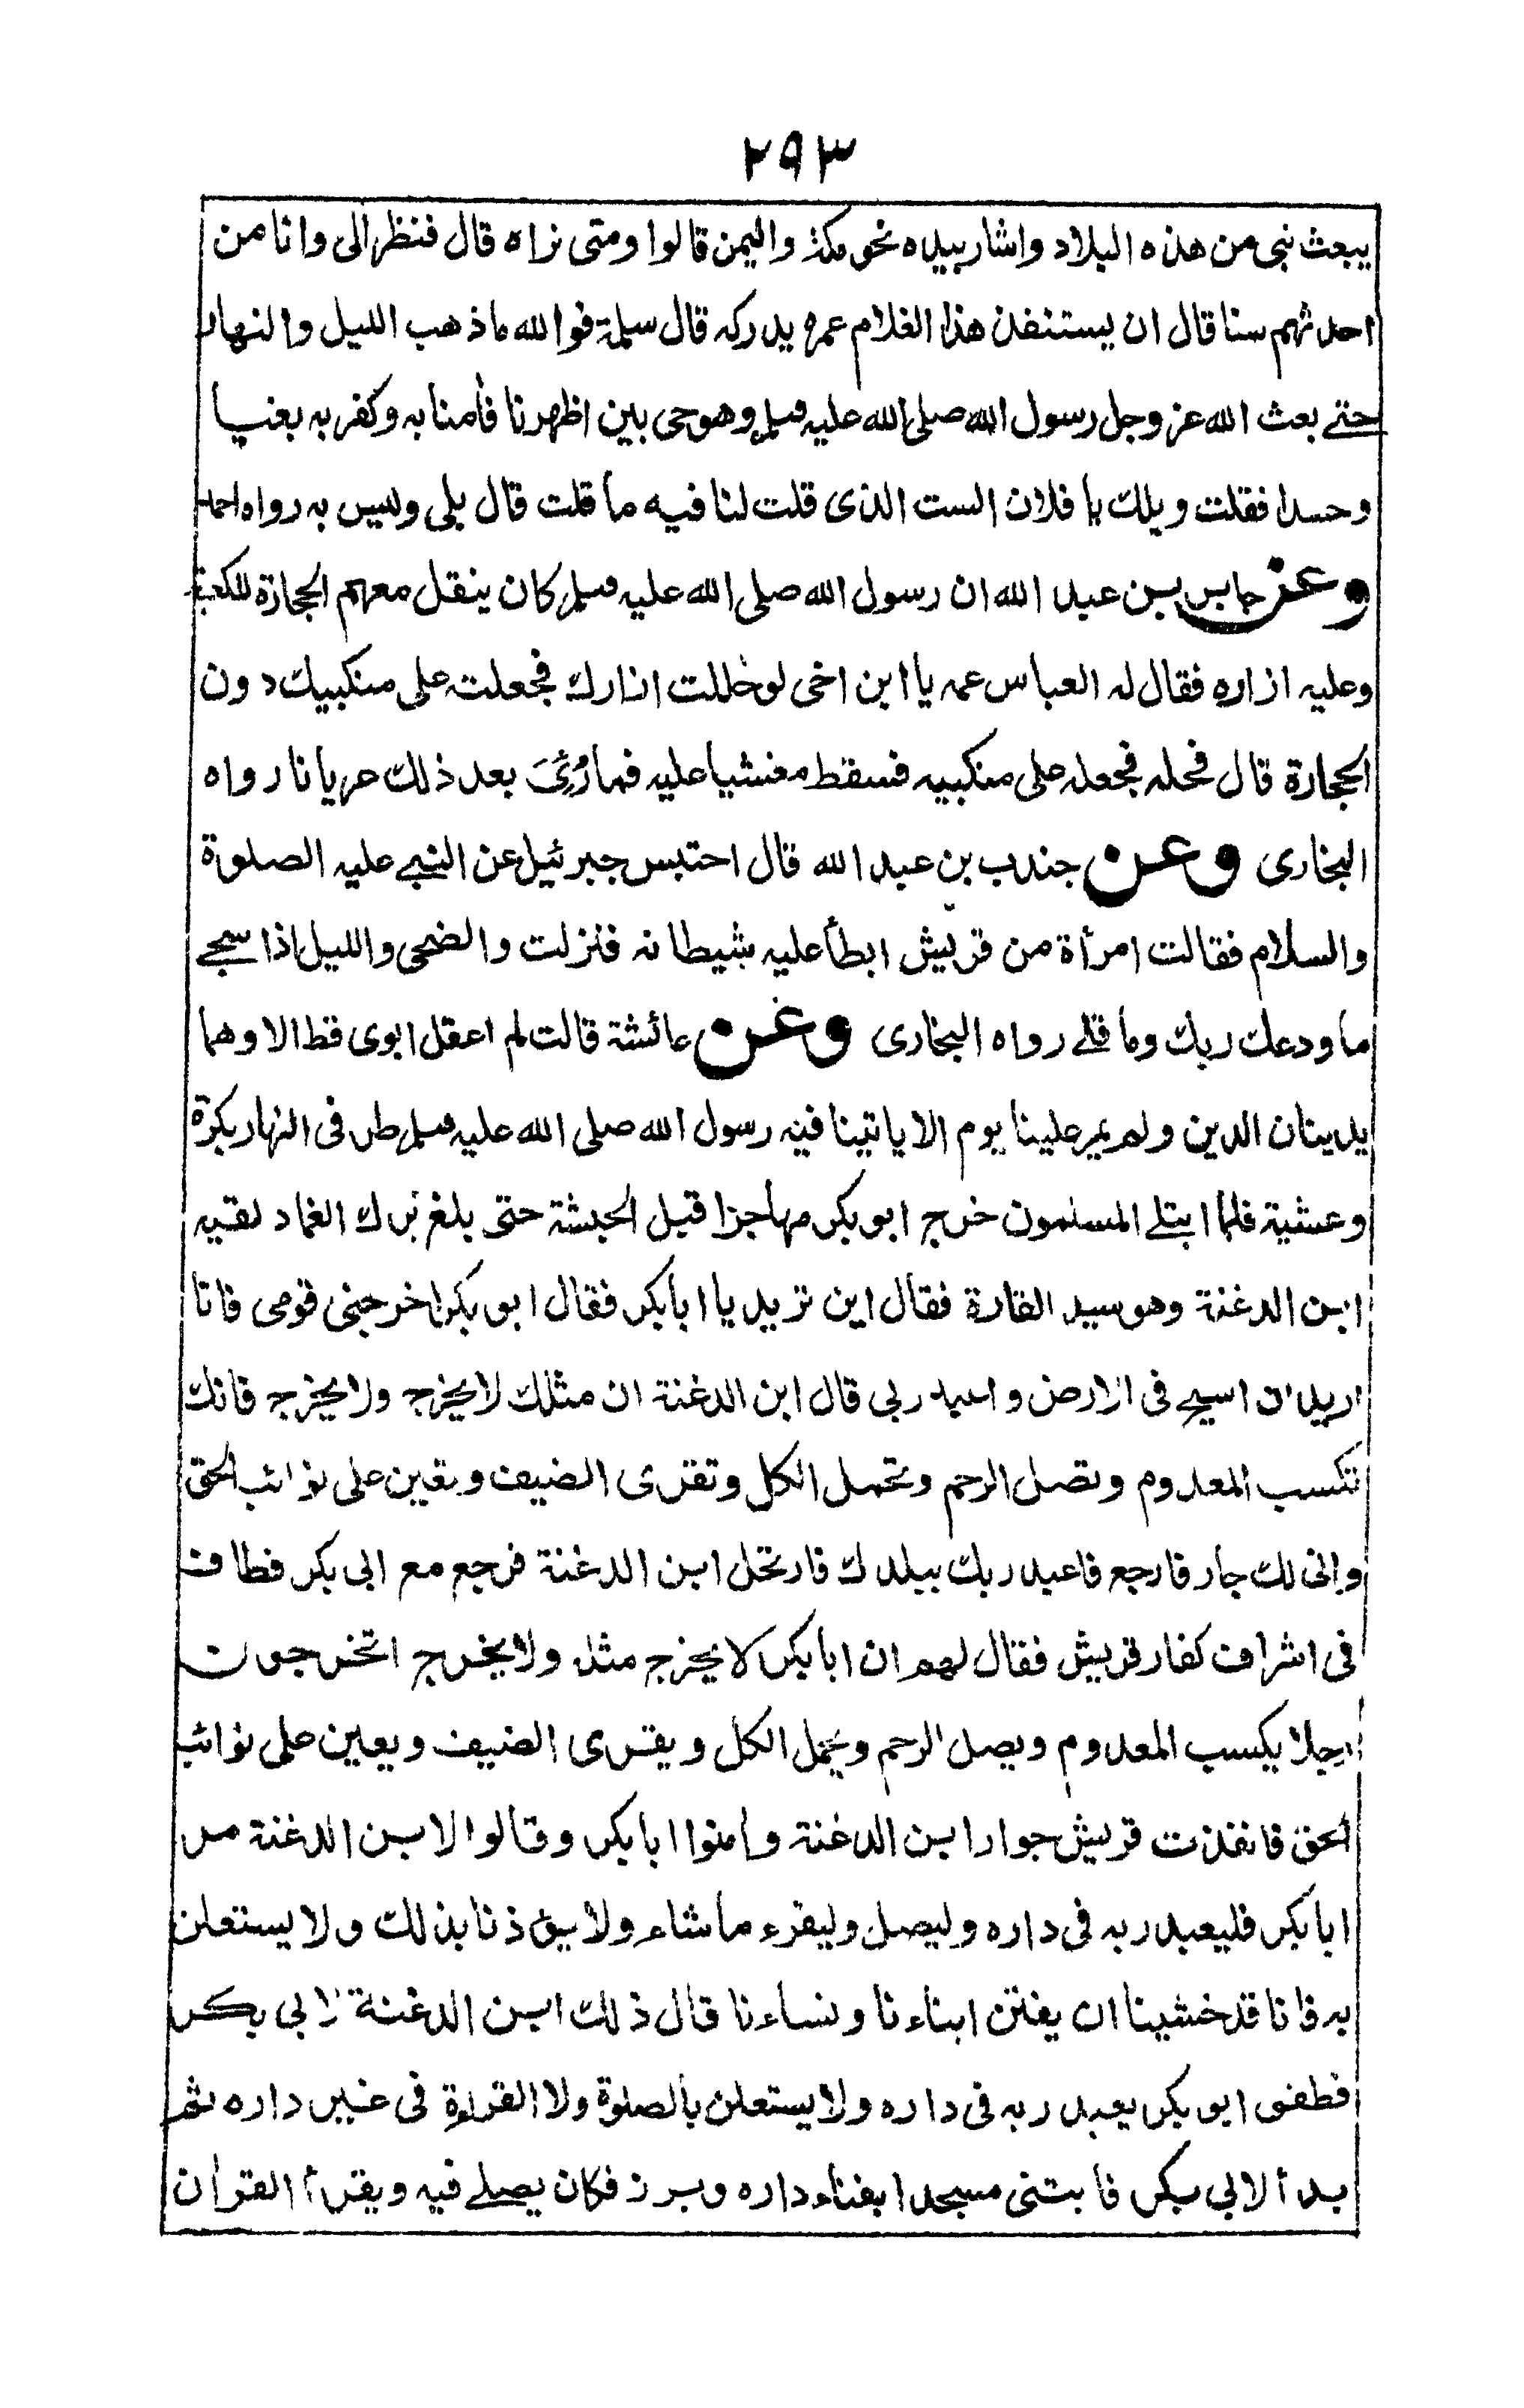 ٢٩٣
يبعث نبى من هذه البلاد واشار بيده نحو مكة واليمن قالوا ومتى نراه قال فنظر الى وانا من
احدثهم سنا قال ان يستنفذ هذا الغلام عمره يدركه قال سلمة فوالله ما ذهب الليل والنهار
حتے بعث الله عز وجل رسول الله صلى الله عليه وسلم وهو حى بين اظهرنا فأمنا به وكفر به بغيا
وحسدا فقلت ويلك يا فلان الست الذى قلت لنا فيه ما قلت قال بلى وليس به رواه احمد
وعن جابر بن عبد الله ان رسول الله صلى الله عليه وسلم كان ينقل معهم الحجارة للكعبة
وعليه ازاره فقال له العباس عمه يا ابن اخى لو حللت ازارك فجعلته على منكبيك دون
الحجارة قال فحله فجعله على منكبيه فسقط مغشيا عليه فما رُئِىَ بعد ذلك عريانا رواه
البخارى وعن جندب بن عبد الله قال احتبس جبرئيل عن النبے عليه الصلوة
والسلام فقالت امرأة من قريش ابطأ عليه شيطانه فنزلت والضحى والليل اذا سجے
ما ودعك ربك وما قلے رواه البخارى وعن عائشة قالت لم اعقل ابوى قط الا وهما
يدينان الدين ولم يمر علينا يوم الا ياتينا فيه رسول الله صلى الله عليه وسلم طرفى النهار بكرة
وعشية فلما ابتلے المسلمون خرج ابو بكر مهاجرا قبل الحبشة حتى بلغ برك الغماد لقيه
ابن الدغنة وهو سيد القارة فقال اين تريد يا ابا بكر فقال ابو بكر اخرجنى قومى فانا
اريد ان اسيح فى الارض واعبد ربى قال ابن الدغنة ان مثلك لا يخرج ولا يخرج فانك
تكسب المعدوم وتصل الرحم وتحمل الكل وتقرى الضيف وتعين على نوائب الحق
وانى لك جار فارجع فاعبد ربك ببلدك فارتحل ابن الدغنة فرجع مع ابى بكر فطاف
فى اشراف كفار قريش فقال لهم ان ابا بكر لا يخرج مثله ولا يخرج اتخرجون
رجلا يكسب المعدوم ويصل الرحم ويحمل الكل ويقرى الضيف ويعين على نوائب
الحق فانفذت قريش جوار ابن الدغنة وامنوا ابا بكر وقالوا لابن الدغنة مر
ابا بكر فليعبد ربه فى داره وليصل وليقرء ما شاء ولا يؤذنا بذلك ولا يستعلن
به فانا قد خشينا ان يفتن ابناءنا ونساءنا قال ذلك ابن الدغنة لابى بكر
فطفق ابو بكر يعبد ربه فى داره ولا يستعلن بالصلوة ولا القراءة فى غير داره ثم
بدأ لابى بكر فابتنى مسجدا بفناء داره وبرز فكان يصلے فيه ويقرأ القرأن